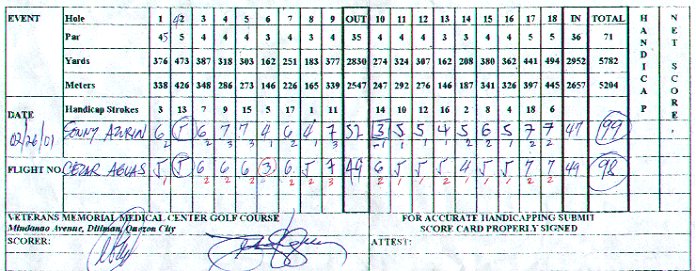 EVENT Hole 1 2 3 4 5 6 7 8 9 OUT 10 11 12 13 14 15 16 17 18 IN TOTAL HANDICAP NET SCORE
Par 45 5 4 4 4 3 4 3 4 35 4 4 4 3 3 4 4 5 5 36 71
Yards 376 473 387 318 303 162 251 183 377 2830 274 324 307 162 208 380 362 441 494 2952 5782
Meters 338 426 348 286 273 146 226 165 339 2547 247 292 276 146 187 341 326 397 445 2657 5204
DATE Handicap Strokes 3 13 7 9 15 5 17 1 11 14 10 12 16 2 8 4 18 6
02/26/01 SONNY AZURIN 6 5 6 7 7 4 6 4 7 52 3 5 5 4 5 6 5 7 7 47 99
FLIGHT NO. CEZAR AGUAS 5 5 6 6 6 3 6 5 7 49 6 5 5 5 4 5 5 7 7 49 98
VETERANS MEMORIAL MEDICAL CENTER GOLF COURSE FOR ACCURATE HANDICAPPING SUBMIT
Mindanao Avenue, Diliman, Quezon City SCORE CARD PROPERLY SIGNED
SCORER: ATTEST: